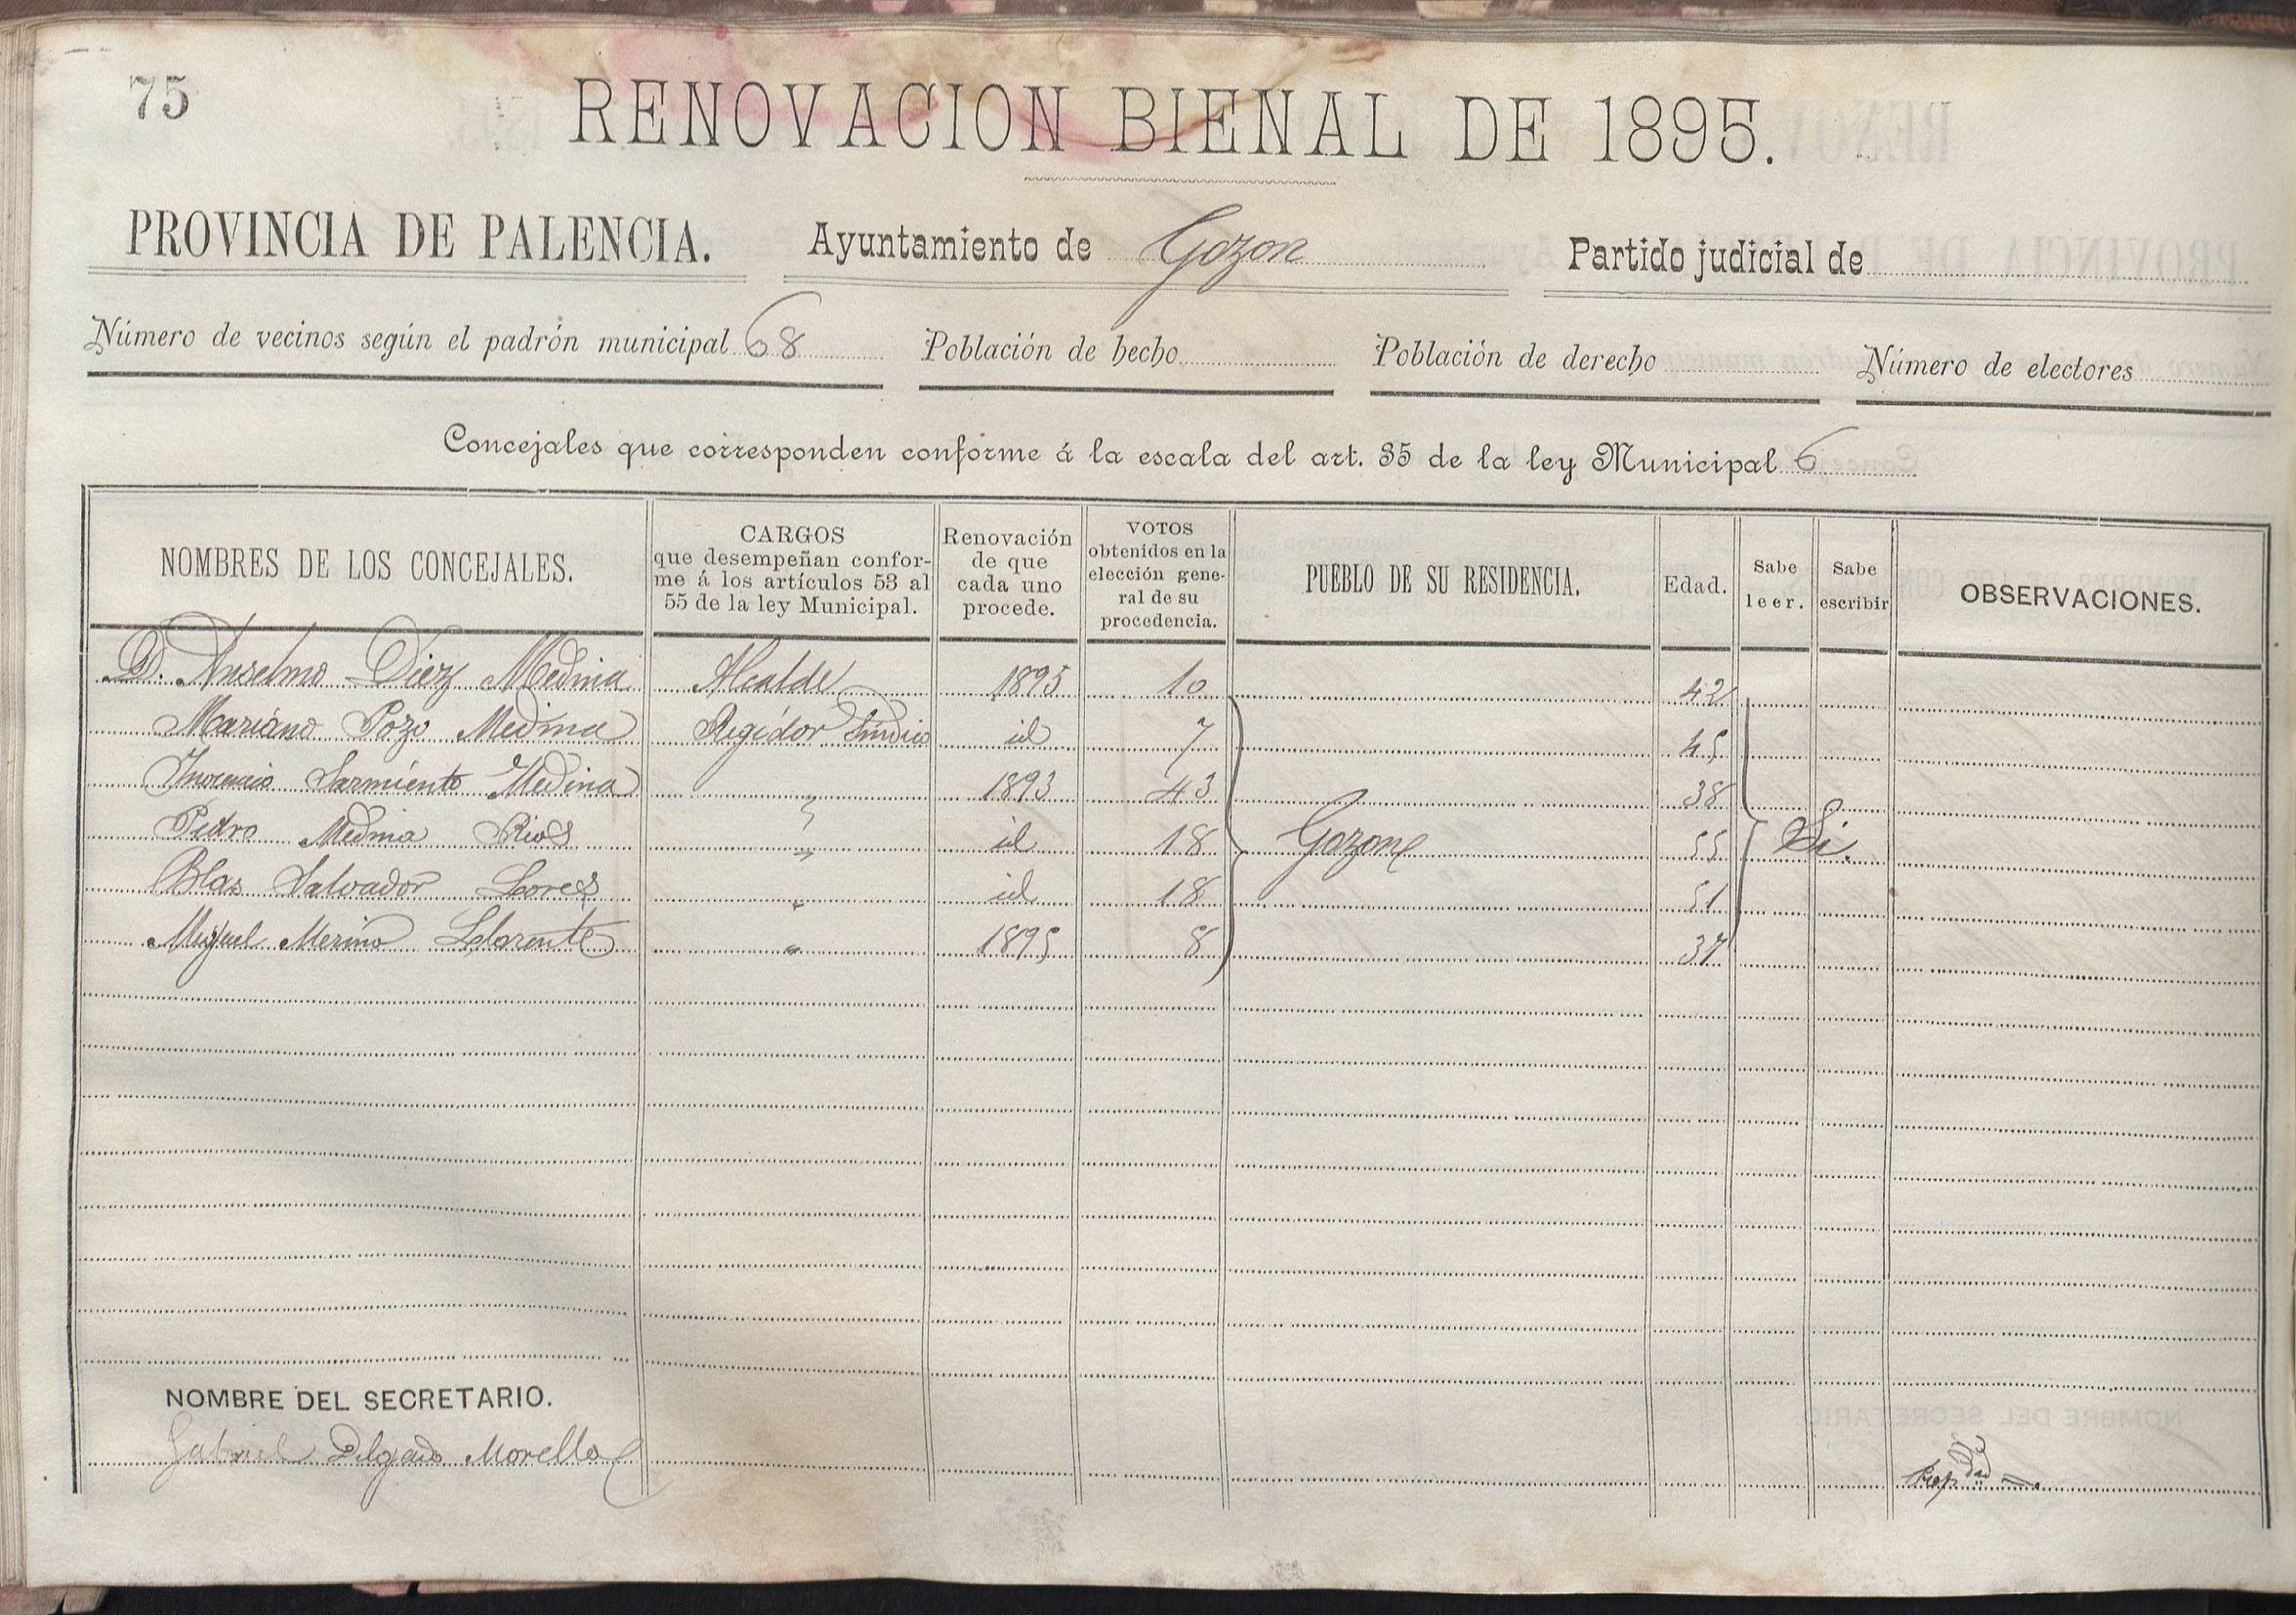 75
RENOVACION BIENAL DE 1895.
PROVINCIA DE PALENCIA. Ayuntamiento de Gozon Partido judicial de
Número de vecinos según el padrón municipal 68 Población de hecho Población de derecho Número de electores
Concejales que corresponden conforme á la escala del art. 35 de la ley Municipal 6
NOMBRES DE LOS CONCEJALES.
CARGOS
que desempeñan confor-
me á los artículos 53 al
55 de la ley Municipal.
Renovación
de que
cada uno
procede.
VOTOS
obtenidos en la
elección gene-
ral de su
procedencia.
PUEBLO DE SU RESIDENCIA.
Edad.
Sabe
leer.
Sabe
escribir
OBSERVACIONES.
D. Anselmo Diez Medina Alcalde 1895 10 42
Mariano Pozo Medina Regidor Sindico id 7 45
Inocencio Sarmiento Medina " 1893 43 38
Pedro Medina Rios " id 18 Gozon 55 Si.
Blas Salvador Lores " id 18 51
Miguel Merino Llorente " 1895 8 37
NOMBRE DEL SECRETARIO.
Gabriel Delgado Morello